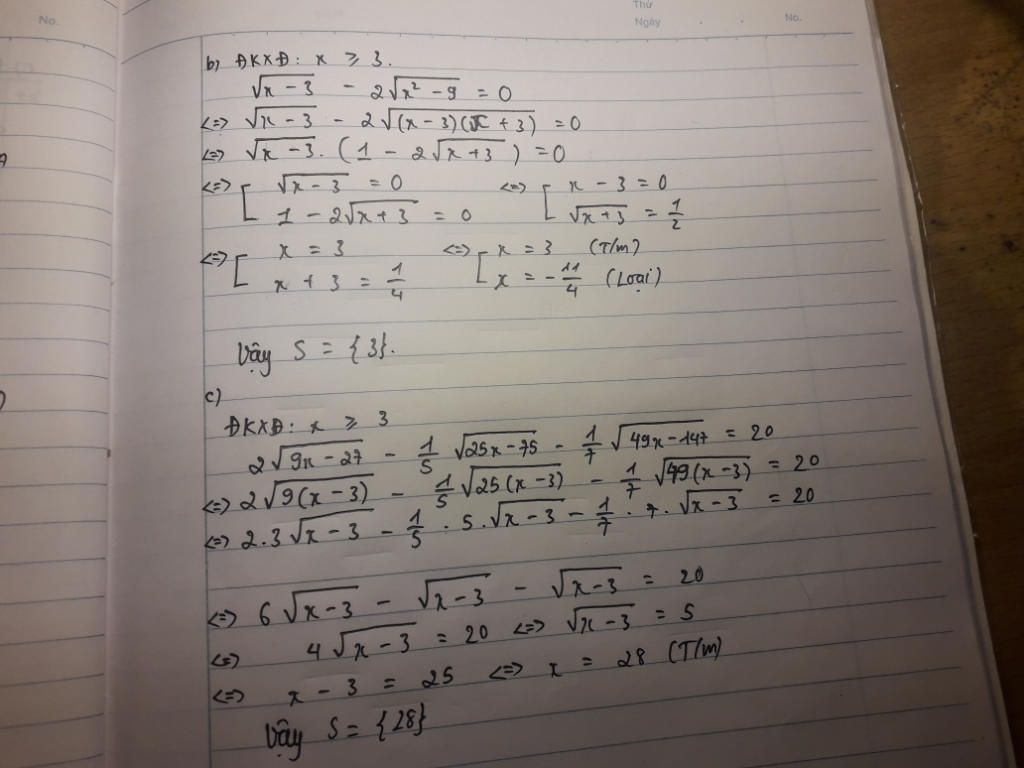 No.
Thứ
Ngày . . No.
b) ĐKXĐ: x ⩾ 3.
√(x - 3) - 2√(x² - 9) = 0
<=> √(x - 3) - 2√((x - 3)(x + 3)) = 0
<=> √(x - 3) . (1 - 2√(x + 3)) = 0
<=> [ √(x - 3) = 0 <=> [ x - 3 = 0
1 - 2√(x + 3) = 0 √(x + 3) = 1/2
<=> [ x = 3 <=> [ x = 3 (T/m)
x + 3 = 1/4 x = -11/4 (Loại)
Vậy S = {3}.
c)
ĐKXĐ: x ⩾ 3
2√(9x - 27) - 1/5 √(25x - 75) - 1/7 √(49x - 147) = 20
<=> 2√(9(x - 3)) - 1/5 √(25(x - 3)) - 1/7 √(49(x - 3)) = 20
<=> 2.3√(x - 3) - 1/5 . 5 . √(x - 3) - 1/7 . 7 . √(x - 3) = 20
<=> 6√(x - 3) - √(x - 3) - √(x - 3) = 20
<=> 4√(x - 3) = 20 <=> √(x - 3) = 5
<=> x - 3 = 25 <=> x = 28 (T/m)
Vậy S = {28}